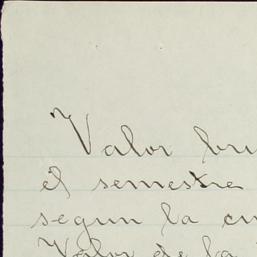 Valor bru
el semestre
segun la cu
Valor de la